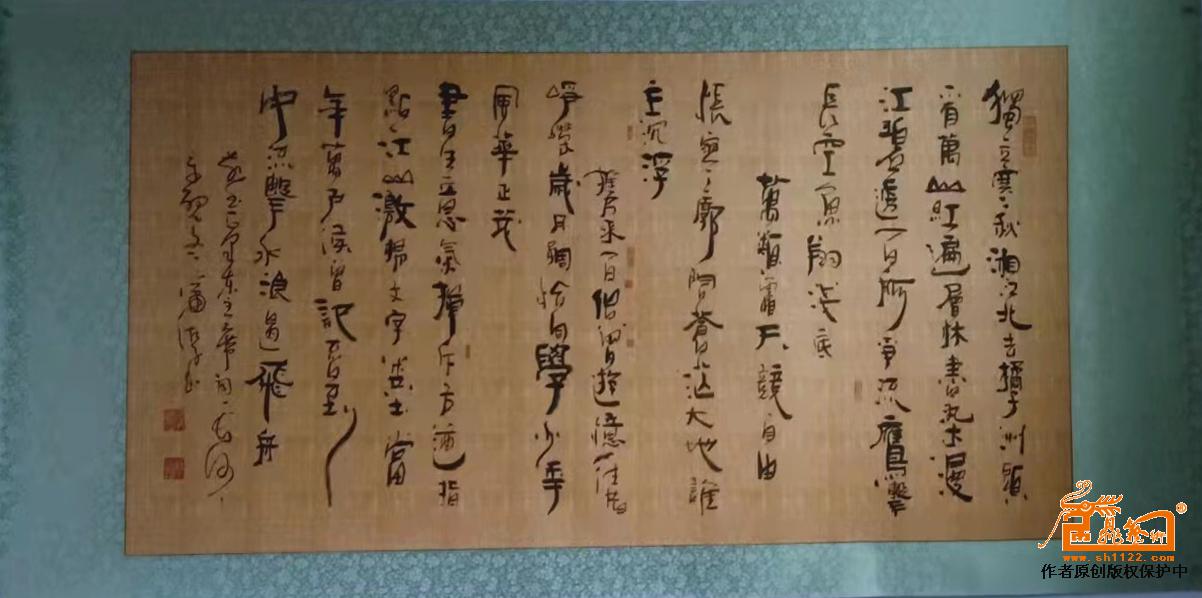 獨立寒秋湘江北去橘子洲頭
看萬山紅遍層林盡染漫
江碧透百舸爭流鷹擊
長空魚翔淺底
萬類霜天競自由
悵寥廓問蒼茫大地誰
主沉浮
攜來百侶曾遊憶往昔
崢嶸歲月稠恰同學少年
風華正茂
書生意氣揮斥方遒指
點江山激揚文字糞土當
年萬戶侯曾記否到
中流擊水浪遏飛舟
毛澤東主席詞長沙
www.sh1122.com
作者原创版权保护中